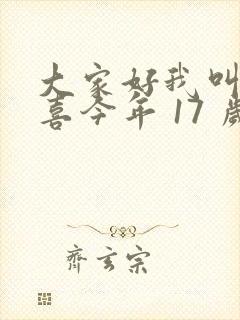 大家好我叫
喜今年 17 歲
齊玄宗